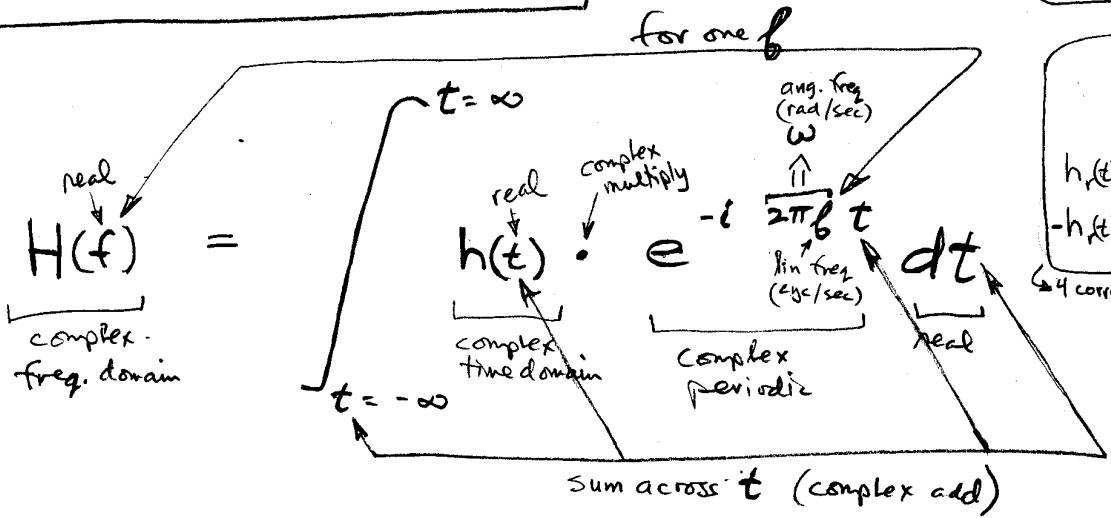 for one f
t = ∞
ang. freq
(rad/sec)
ω
⇑
real
real
complex
multiply
H(f) = ∫ h(t) · e^{-i 2πf t} dt
lin freq
(cyc/sec)
complex
freq. domain
complex
time domain
complex
periodic
real
t = -∞
sum across t (complex add)
h_r(t)
-h_r(t)
↳ 4 corr